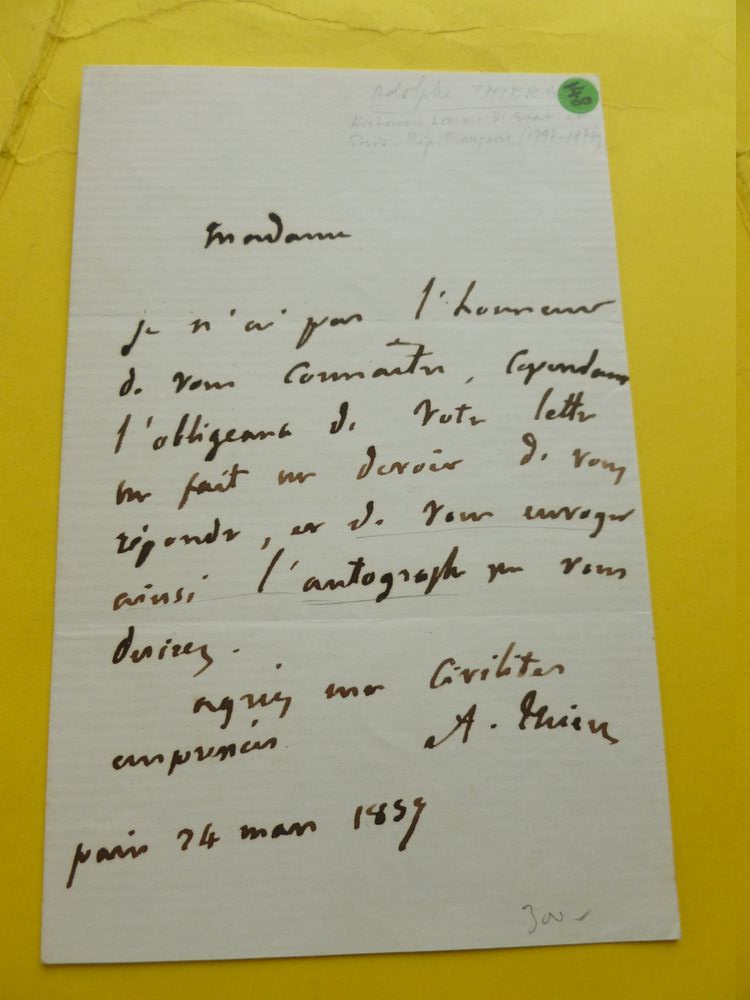 Adolphe THIERS
Historien, homme d'Etat et
Prés. Rép. Française (1797-1877)
Madame
je n'ai pas l'honneur
de vous connaître, cependant
l'obligeance de votre lettre
me fait un devoir de vous
répondre, et de vous envoyer
ainsi l'autographe que vous
desirez.
agréez mes civilités
empressées A. Thiers
paris 24 mars 1859
300